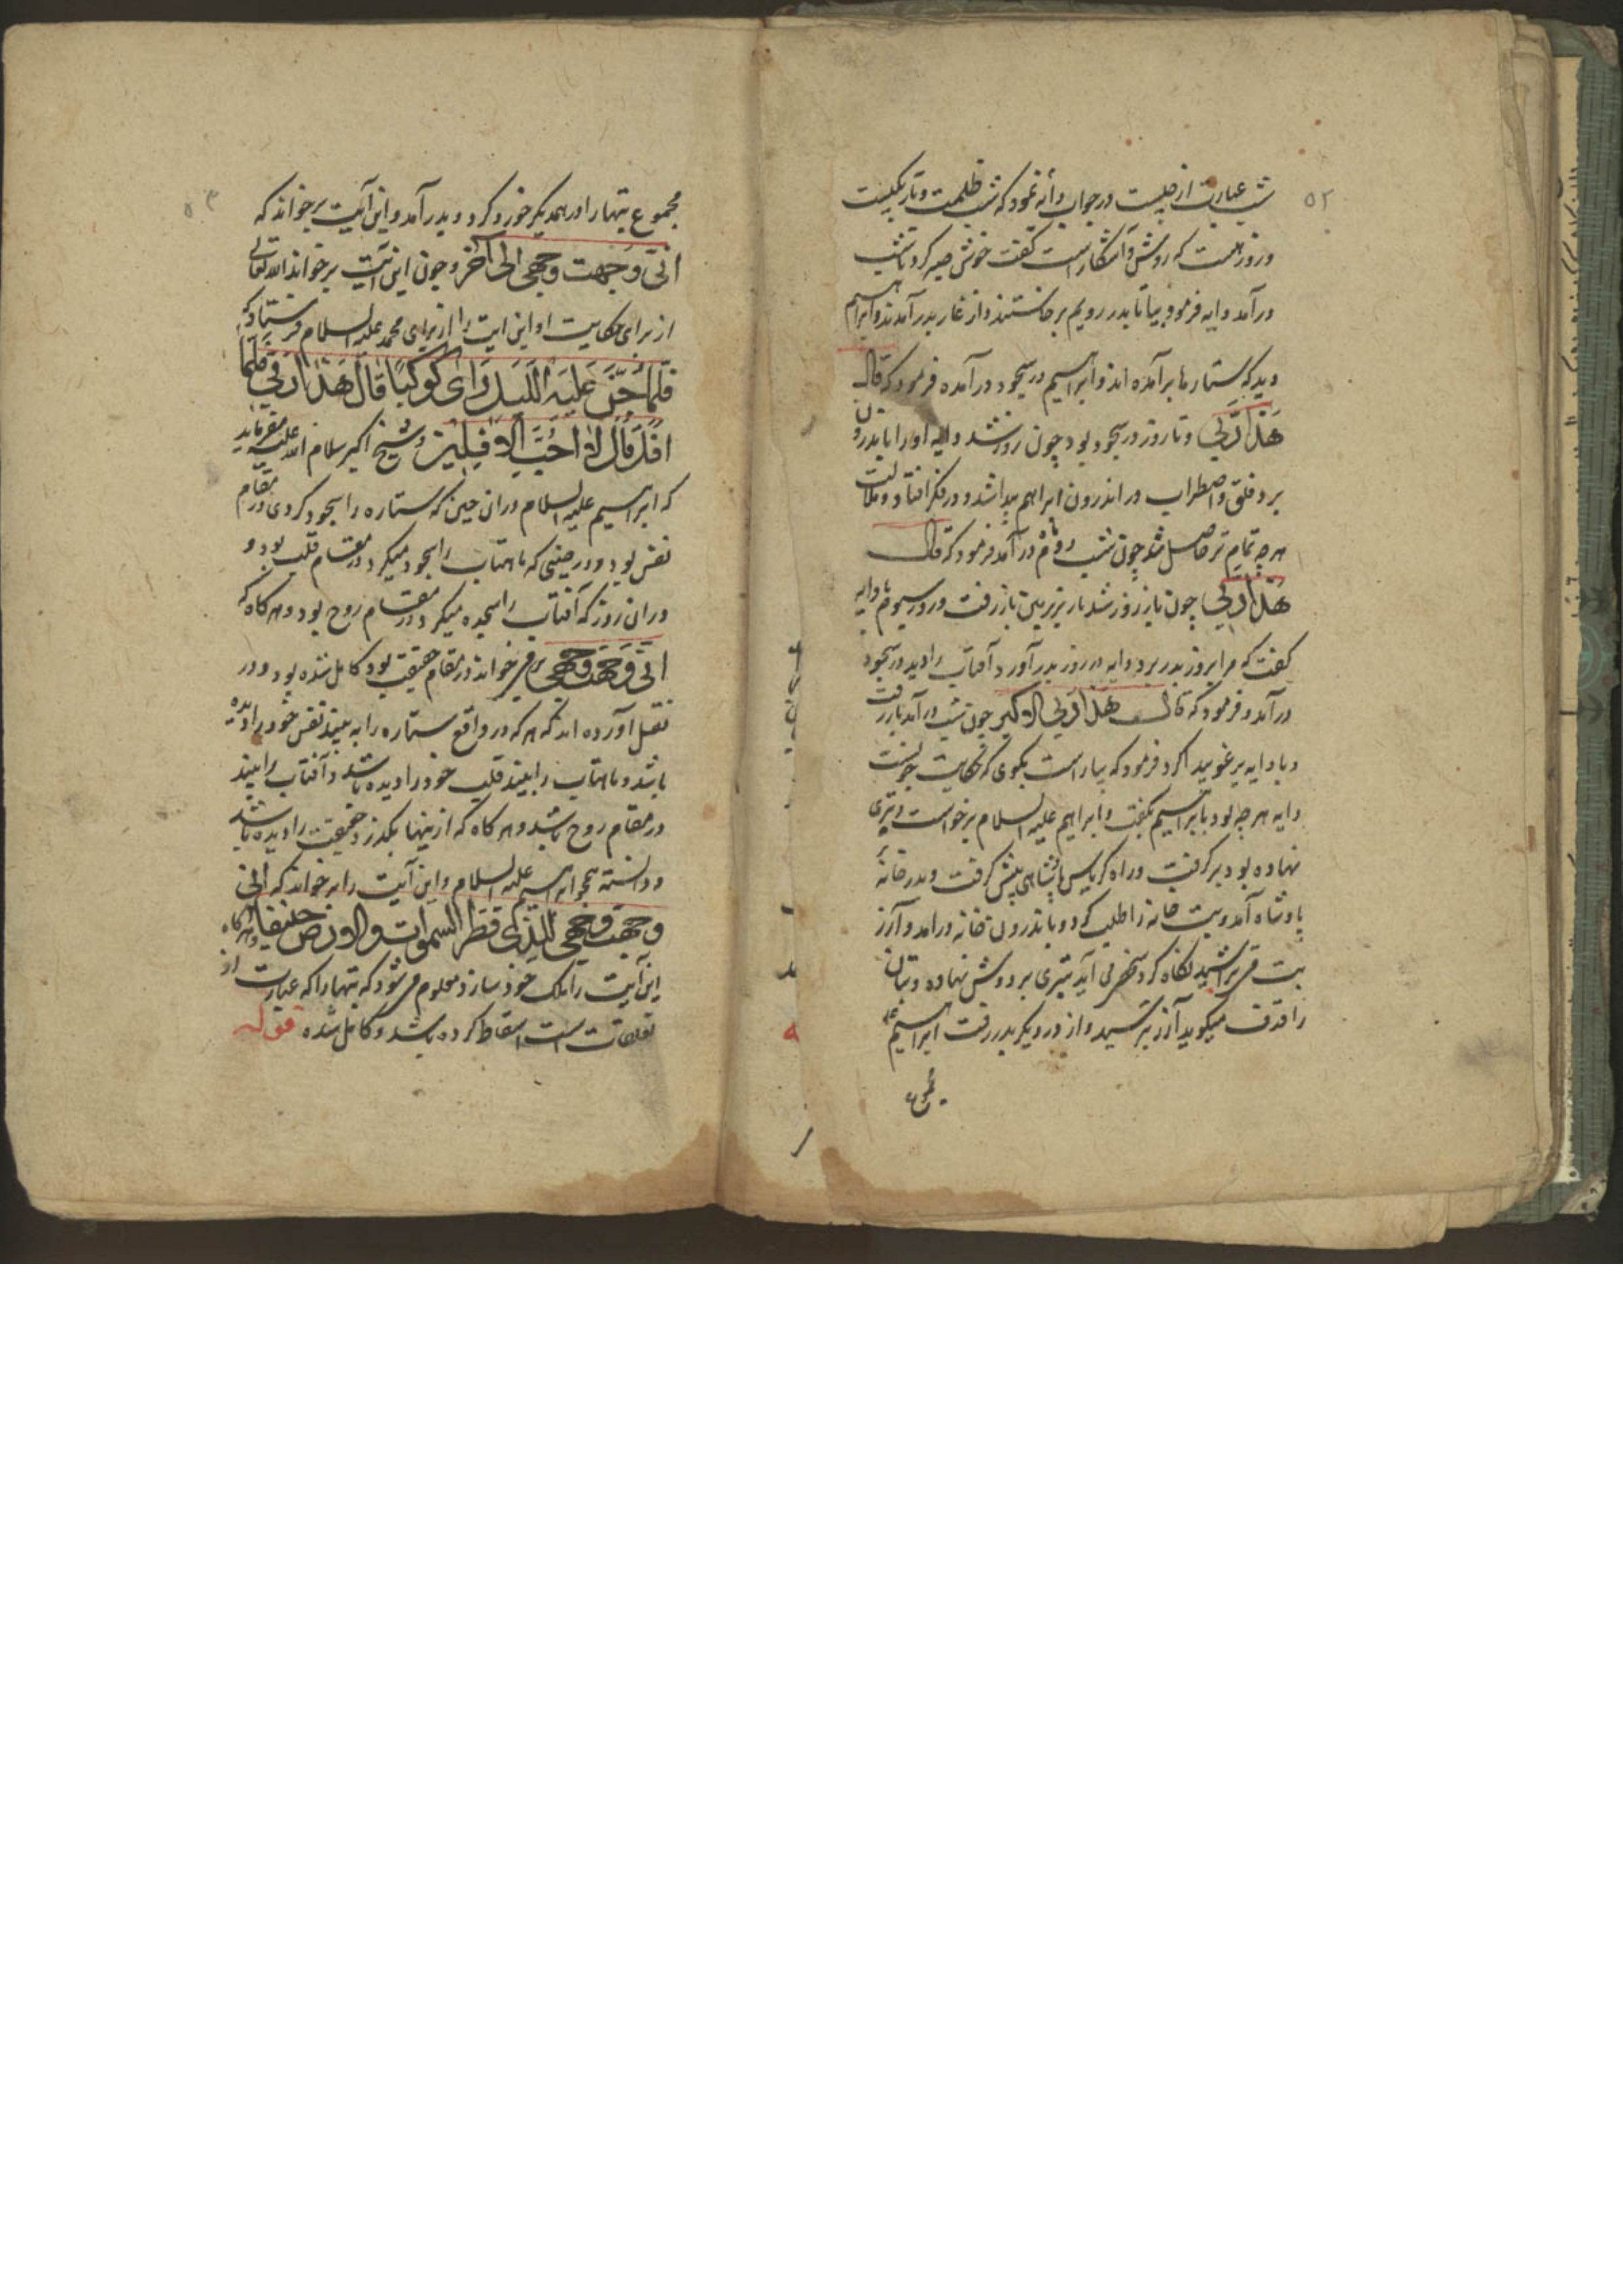 ۵۲
شب عبارت از چیست در جواب دایه نمود که شب ظلمت و تاریکیست
و روز هست که روشن و آشکار است گفت خوش صبر کرد تا شب
درآمد دایه فرمود بیا تا بدر رویم برخاستند و از غار بدر آمدند و ابراهیم
دید که ستارها برآمده اند و ابراهیم در سجود درآمده فرمود که قال
هَذَا رَبِّی و تا روز در سجود بود چون روز شد دایه او را با بدرون
برد و قلق و اضطراب در اندرون ابراهیم پیدا شد و در فکر افتاد و ملالت
هرچه تمام تر حاصل شد چون شب دوم درآمد فرمود که قال
هَذَا رَبِّی چون باز روز شد باز بزیر زمین باز رفت و روز سیوم با دایه
گفت که مرا بروز بدر برد دایه در روز بدر آورد آفتاب را دید در سجود
درآمد و فرمود که قال هَذَا رَبِّی الاکبر چون شب درآمد باز رفت
و با دایه فرمود که بیا راست بگوی که حکایت چونست
دایه هرچه بود با ابراهیم بگفت و ابراهیم علیه السلام برخواست و تبری
نهاده بود برگرفت و راه پیش گرفت و بدر خانهٔ
پادشاه آمد و بت خانه را طلب کرد و باندرون خانه درآمد و آزر
بت می تراشید نگاه کرد می آید تبری بر دوش نهاده و بتان
را قذف میگوید آزر بترسید و از در دیگر بدر رفت ابراهیم
مجموع
۵۳
مجموع بتهارا در همدیگر خورد کرد و بدر آمد و این آیت برخواند که
انّی وجهت وجهی الی آخر و چون این آیت برخواند الله تعالی
از برای حکایت او این ایت را از برای محمد علیه السلام فرستاد که
فَلَمَّا جَنَّ عَلَیْهِ اللَّیْلُ رَأی کَوْکَبًا قَالَ هَذَا رَبِّی فَلَمَّا
اَفَلَ قَالَ لَا اُحِبُّ الْافِلِینَ و شیخ اکبر سلام الله علیه میفرماید
که ابراهیم علیه السلام در ان حین که ستاره را سجود کردی در مقام
نفس بود و در حینی که ماهتاب را سجود میکرد در مقام قلب بود و
در ان روز که آفتاب را سجده میکرد در مقام روح بود و هرگاه که
انّی وجهت وجهی برمیخواند در مقام حقیقت بود کامل شده بود و در
نقل آورده اند که هرکه در واقع ستاره را به بیند نفس خود را دیده
باشد و ماهتاب را بیند قلب خود را دیده باشد و آفتاب را بیند
در مقام روح باشد و هرگاه که از اینها بگذرد حقیقت را دیده باشد
و دانسته همچو ابراهیم علیه السلام و این آیت را برخواند که انّی
وجهت وجهی للذی فطر السموات والارض حنیفا و هرگاه
این آیت را ملک خود سازد معلوم میشود که بتهارا که عبارت از
تعلقات است اسقاط کرده باشد و کامل شده قوله